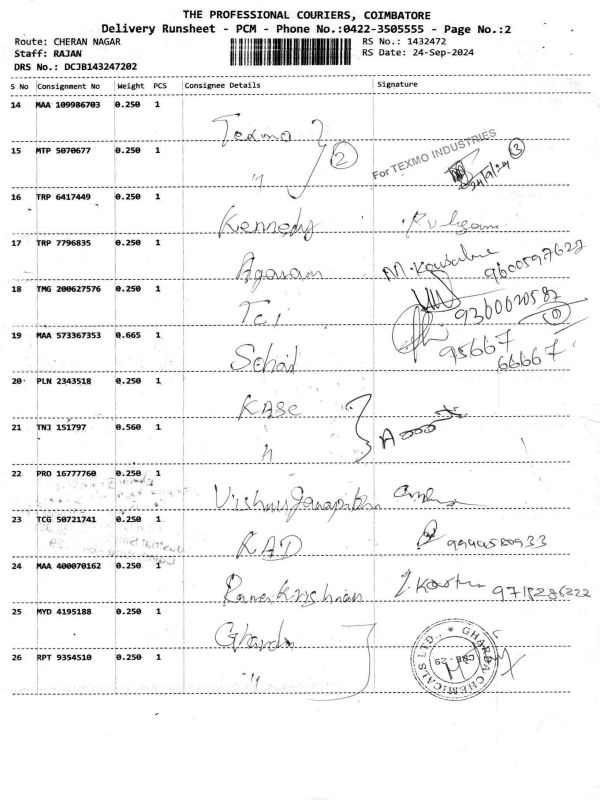 THE PROFESSIONAL COURIERS, COIMBATORE
Delivery Runsheet - PCM - Phone No.:0422-3505555 - Page No.:2
Route: CHERAN NAGAR
Staff: RAJAN
DRS No.: DCJB143247202
RS No.: 1432472
RS Date: 24-Sep-2024
S No Consignment No Weight PCS Consignee Details Signature
14 MAA 109986703 0.250 1 Texmo
15 MTP 5070677 0.250 1 " 2 For TEXMO INDUSTRIES 3
16 TRP 6417449 0.250 1 Kennedy
17 TRP 7796835 0.250 1 Agaram M. Kousalya 9600597622
18 TMG 200627576 0.250 1 TCI 9360620587
19 MAA 573367353 0.665 1 95667 66667
20 PLN 2343518 0.250 1 KASC
21 TNJ 151797 0.560 1 "
22 PRO 16777760 0.250 1
23 TCG 50721741 0.250 1 RAD 9944580933
24 MAA 400070162 0.250 1 Ramakrishnan 9715286222
25 MYD 4195188 0.250 1 Gharda
26 RPT 9354510 0.250 1 "
GHARDA CHEMICALS LTD., * CBE - 29.